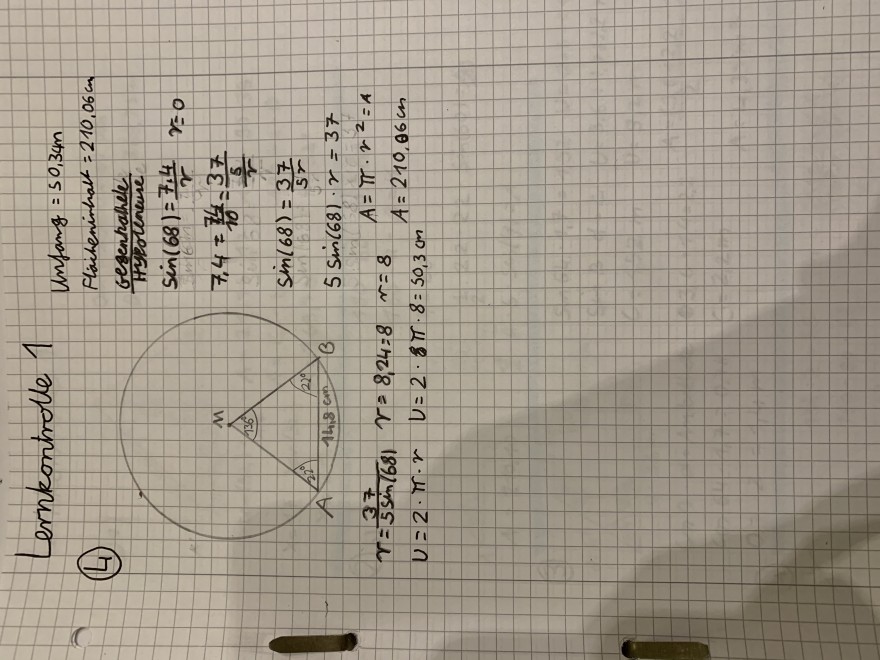 Lernkontrolle 1
4
Umfang = 50,34m
Flächeninhalt = 210,06 cm
Gegenkathete
Hypotenuse
sin(68) = 7.4/r r=0
7,4 = 74/10 = 37/5/r
sin(68) = 37/5r
5 sin(68) · r = 37
M
136°
22°
22°
A
B
14,8 cm
r = 37/5sin(68) r = 8,24=8 r = 8 A = π · r² = A
U = 2 · π · r U = 2 · 8 π · 8 = 50,3 cm A = 210,06 cm